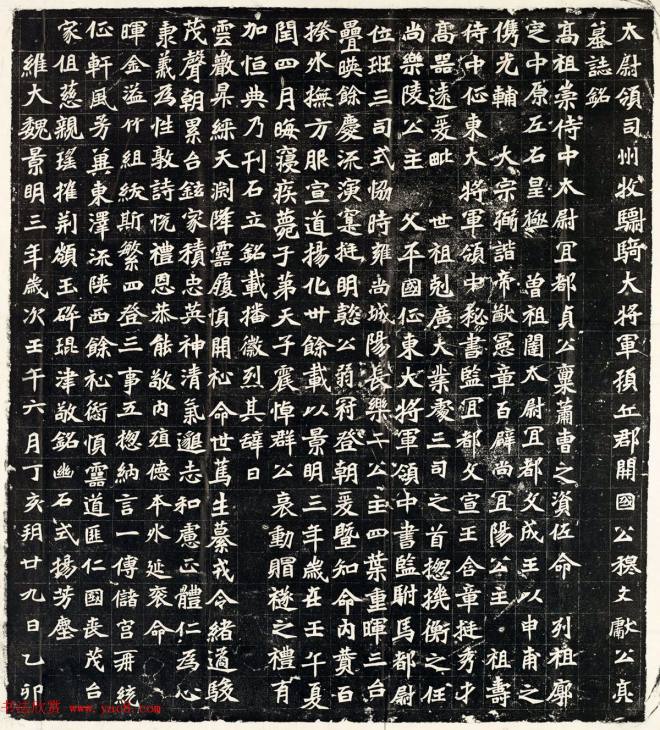 太尉領司州牧驃騎大將軍頓丘郡開國公穆文獻公亮
墓誌銘
高祖崇侍中太尉冝都貞公稟蕭曹之資佐命　列祖廓
定中原左右皇極　曾祖闥太尉冝都文成王以申甫之
儁光輔　大宗弼諧帝猷憲章百辟尚冝陽公主　祖壽
侍中征東大將軍領中秘書監冝都文宣王含章挺秀才
高器遠爰毗　世祖剋廣大業處三司之首揔機衡之任
尚樂陵公主　父平國征東大將軍領中書監駙馬都尉
位班三司式協時雍尚城陽長樂二公主四葉重暉三台
疊暎餘慶流演寔挺明懿公弱冠登朝爰暨知命內贊百
揆外撫方服宣道揚化卅餘載以景明三年歲在壬午夏
閏四月晦寢疾薨于苐天子震悼群公哀動賵襚之禮有
加恒典乃刊石立銘載播徽烈其辭曰
雲巖昇綵天淵降靈履順開祉命世篤生纂戎令緒適駿
茂聲朝累台鉉家積忠英神清氣邈志和慮正體仁爲心
秉義爲性敦詩悅禮恩恭能敬內殖德本外延袞命
暉金溢竹組紱斯繁四登三事五揔納言一傅儲宮再統
征軒風芳冀東澤流陝西餘祉銜順靈道匪仁國喪茂台
家徂慈親瑤摧荆巔玉碎琨津敬銘幽石式揚芳塵
維大魏景明三年歲次壬午六月丁亥朔廿九日乙卯
书法欣赏 www.yac8.com